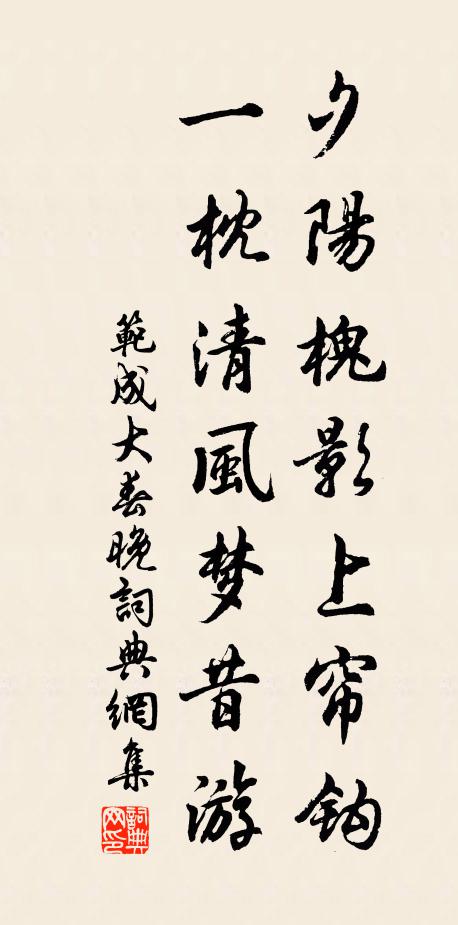 夕陽槐影上帘鈎
一枕清風梦昔游
範成大春晚詞典網集
詞典网印